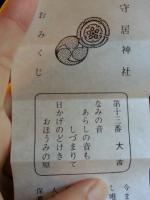 守居神社
おみくじ
第十三番 大吉
なみの音
あらしの音も
しづまりて
日かげのどけき
おほうみの原